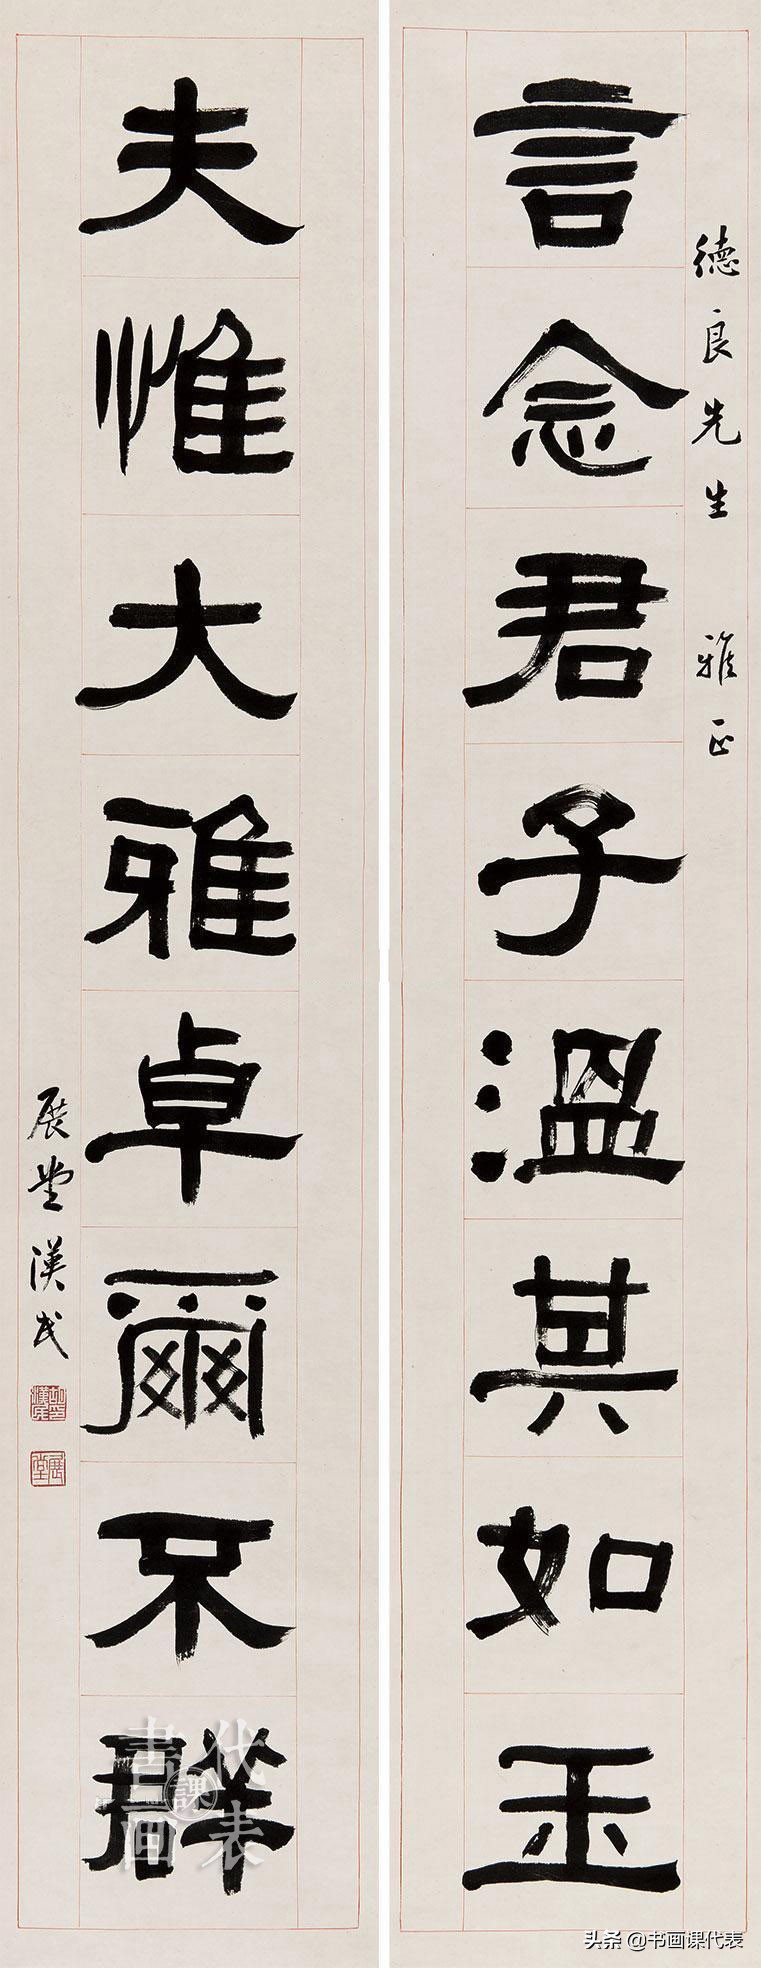 德良先生 雅正
言念君子溫其如玉
夫惟大雅卓爾不群
展堂漢民
展堂
書畫課代表
头条 @书画课代表